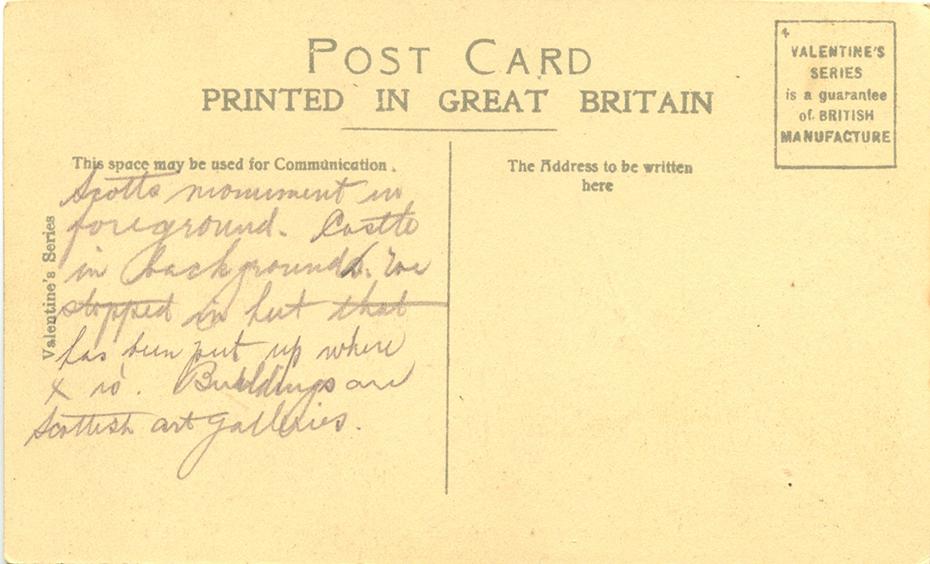 POST CARD
PRINTED IN GREAT BRITAIN
VALENTINE'S
SERIES
is a guarantee
of BRITISH
MANUFACTURE
This space may be used for Communication.
The Address to be written
here
Valentine's Series
Scotts monument in
foreground. Castle
in background. We
stopped in hut that
has been put up where
x is. Buildings are
Scottish art Galleries.